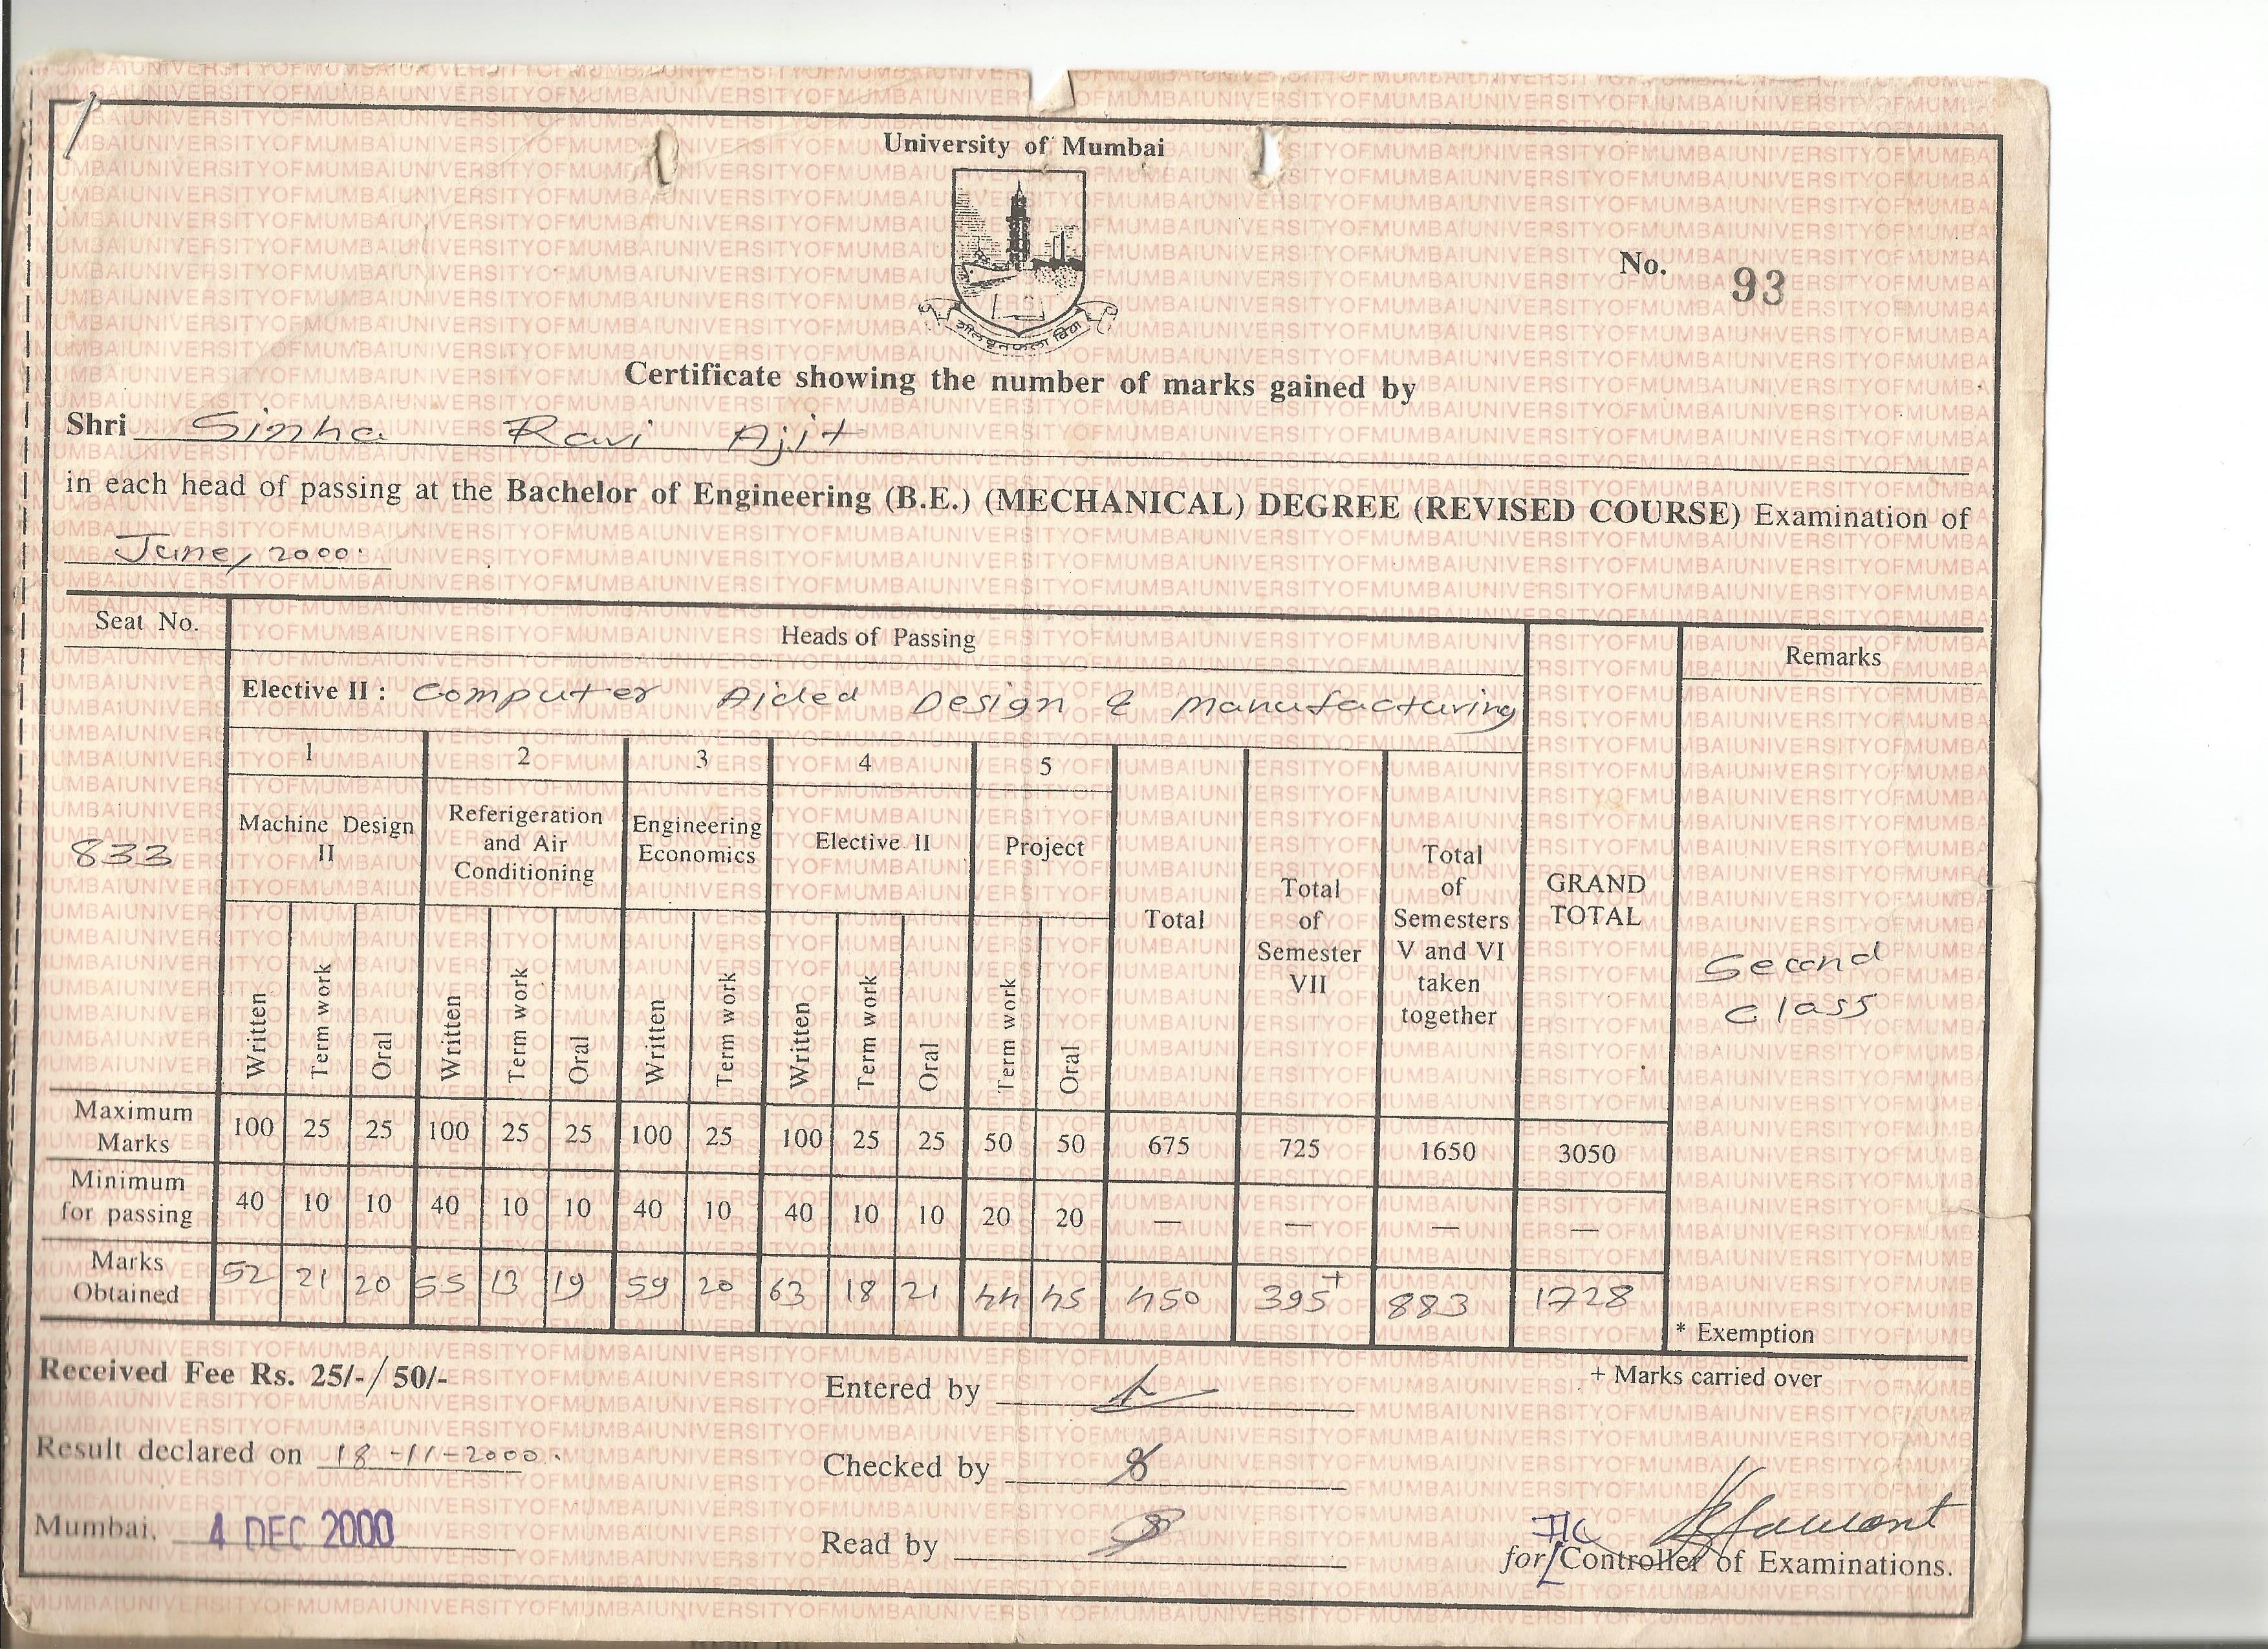 University of Mumbai
शीलवृतफला विद्या
No. 93
Certificate showing the number of marks gained by
Shri Sinha Ravi Ajit
in each head of passing at the Bachelor of Engineering (B.E.) (MECHANICAL) DEGREE (REVISED COURSE) Examination of
June, 2000.
Seat No.
Heads of Passing
Remarks
Elective II : Computer Aided Design & Manufacturing
1 2 3 4 5
833
Machine Design II
Referigeration and Air Conditioning
Engineering Economics
Elective II
Project
Total
Total of Semester VII
Total of Semesters V and VI taken together
GRAND TOTAL
Second Class
Written Term work Oral Written Term work Oral Written Term work Written Term work Oral Term work Oral
Maximum Marks 100 25 25 100 25 25 100 25 100 25 25 50 50 675 725 1650 3050
Minimum for passing 40 10 10 40 10 10 40 10 40 10 10 20 20 — — — —
Marks Obtained 52 21 20 55 13 19 59 20 63 18 21 44 45 450 395+ 883 1728
* Exemption
Received Fee Rs. 25/-/50/-
Entered by
+ Marks carried over
Result declared on 18-11-2000.
Checked by
Mumbai, 4 DEC 2000
Read by
I/C
for Controller of Examinations.